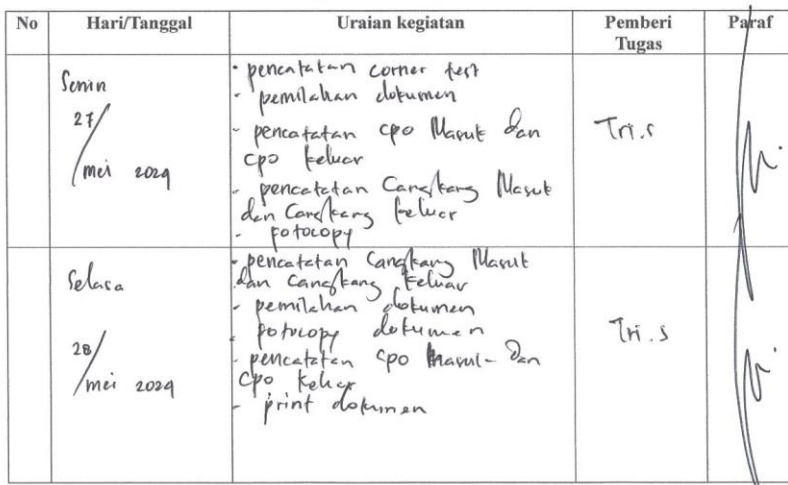 No Hari/Tanggal Uraian kegiatan Pemberi Tugas Paraf
Senin
27/
mei 2024
- pencatatan corner test
- pemilahan dokumen
- pencatatan cpo Masuk dan
cpo keluar
- pencatatan Cangkang Masuk
dan Cangkang keluar
- potocopy
Tri.s
Selasa
28/
mei 2024
- pencatatan Cangkang Masuk
dan Cangkang keluar
- pemilahan dokumen
- potocopy dokumen
- pencatatan cpo Masuk dan
cpo keluar
- print dokumen
Tri.s